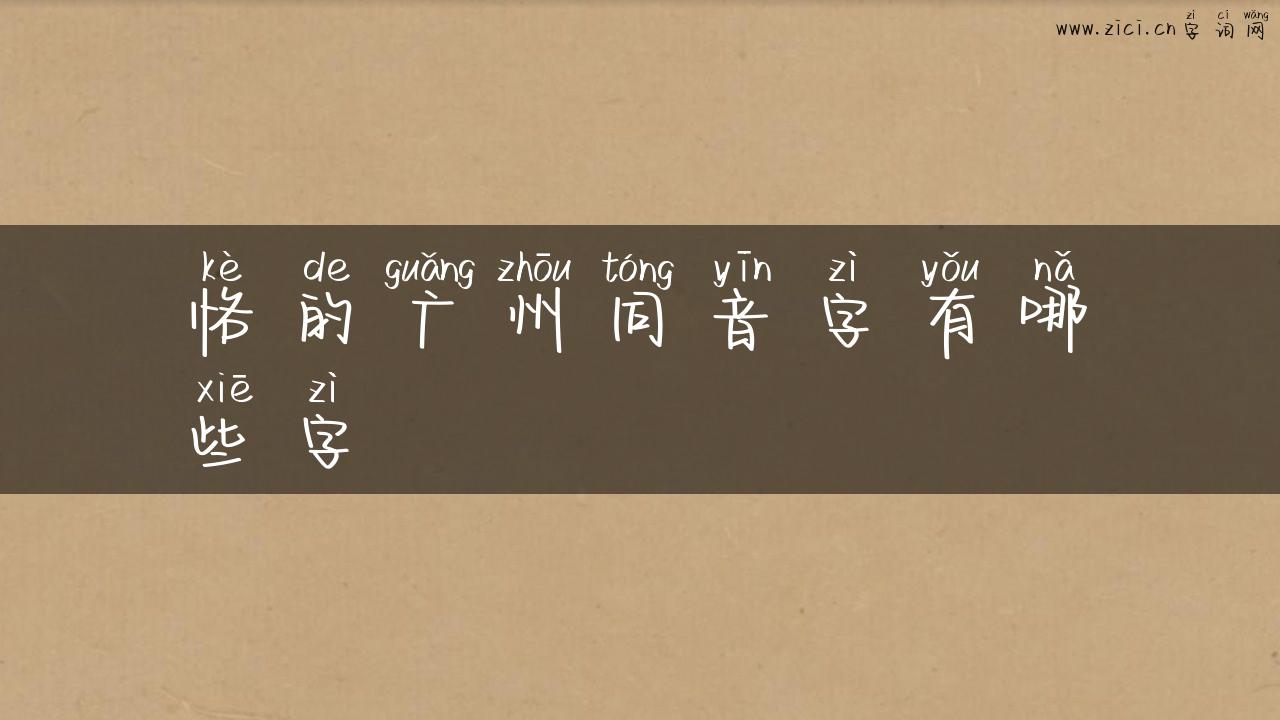 zì cí wǎng
www.zici.cn 字 词 网
kè de guǎng zhōu tóng yīn zì yǒu nǎ
恪 的 广 州 同 音 字 有 哪
xiē zì
些 字